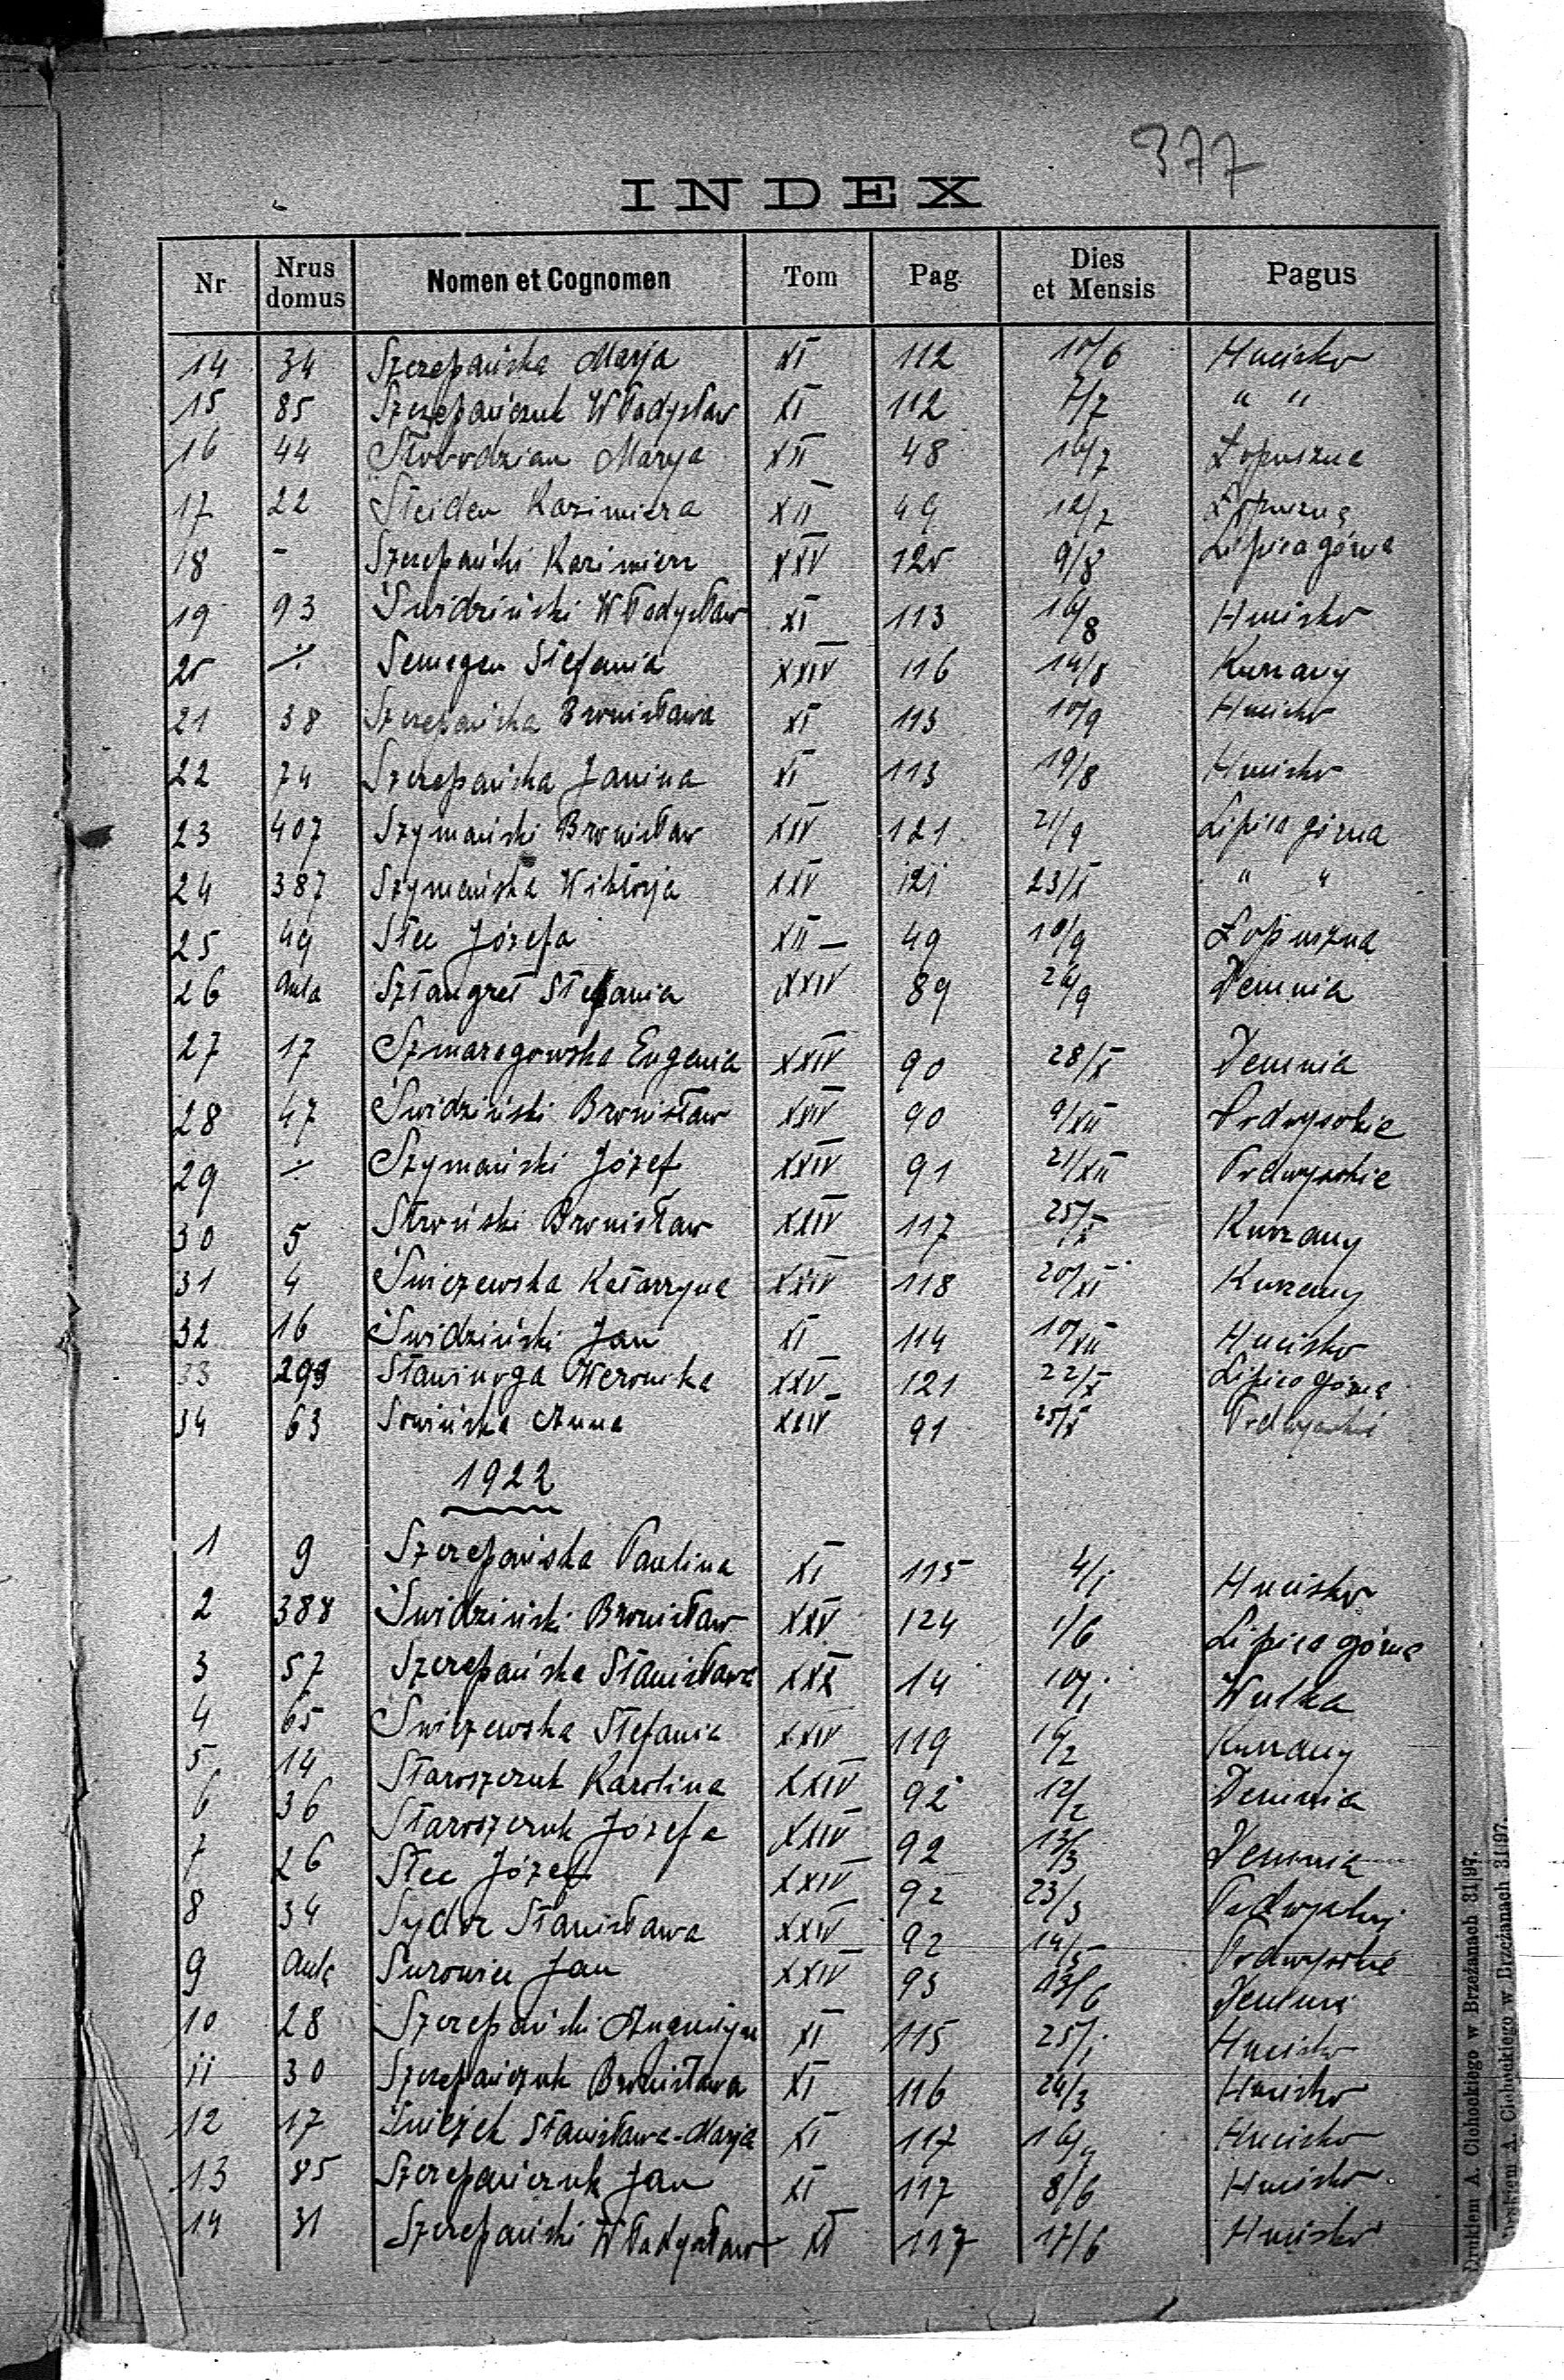 377
INDEX
Nr Nrus domus Nomen et Cognomen Tom Pag. Dies et Mensis Pagus
14 34 Szczepańska Marja XI 112 10/6 Hucisko
15 85 Szczepańczuk Władysław XI 112 7/7 " "
16 44 Słobodzian Marya XII 48 16/7 Łopuszna
17 22 Steiden Kazimiera XII 49 12/7 Łopuszna
18 - Szczepański Kazimierz XXV 120 9/8 Lipica górna
19 93 Świdziński Władysław XI 113 16/8 Hucisko
20 ./. Semegen Stefania XXIV 116 14/8 Kurzany
21 38 Szczepańska Bronisława XI 113 10/9 Hucisko
22 74 Szczepańska Janina XI 113 19/8 Hucisko
23 407 Szymański Bronisław XXV 121 21/9 Lipica górna
24 387 Szymańska Wiktorja XXV 121 23/X " "
25 49 Stec Józefa XII 49 10/9 Łopuszna
26 Aula Sztangret Stefania XXIV 89 26/9 Demnia
27 17 Szmaragowska Eugenia XXIV 90 28/X Demnia
28 47 Świdziński Bronisław XXIV 90 9/XII Podwysokie
29 ./. Szymański Józef XXIV 91 21/XII Podwysokie
30 5 Stroński Bronisław XXIV 117 25/X Kurzany
31 4 Świczewska Katarzyna XXIV 118 20/XI Kurzany
32 16 Świdziński Jan XI 114 10/XII Hucisko
33 293 Stawinoga Weronika XXV 121 22/X Lipica górna
34 63 Sowińska Anna XXIV 91 25/X
1922
1 9 Szczepańska Paulina XI 115 4/1 Hucisko
2 388 Świdziński Bronisław XXV 124 1/6 Lipica górna
3 57 Szczepańska Stanisława XXX 14 10/1 Wulka
4 65 Świczewska Stefania XXIV 119 16/2 Kurzany
5 14 Staroszczuk Karolina XXIV 92 12/2 Demnia
6 36 Staroszczuk Józefa XXIV 92 13/3 Demnia
7 26 Stec Józef XXIV 92 23/3
8 34 Sydor Stanisława XXIV 92 14/5 Podwysokie
9 Aula Surowiec Jan XXIV 93 13/6 Demnia
10 28 Szczepański XI 115 25/1 Hucisko
11 30 Szczepańczuk Bronisława XI 116 24/3 Hucisko
12 17 Stanisława-Marja XI 117 Hucisko
13 85 Szczepańczuk Jan XI 117 8/6 Hucisko
14 31 Szczepański Władysław XI 117 17/6 Hucisko
Drukiem A. Cichockiego w Brzeżanach 31|97.
Drukiem A. Cichockiego w Brzeżanach 31|97.